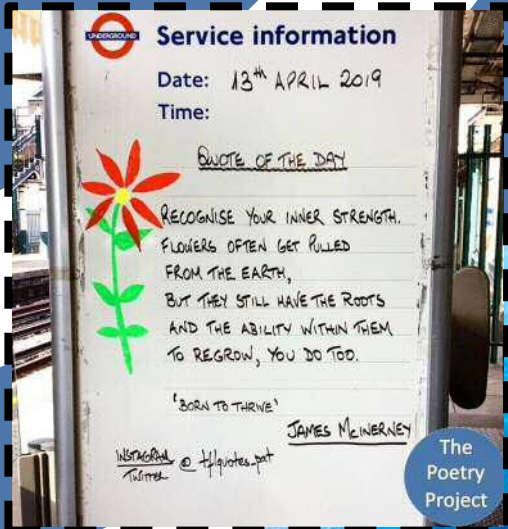 UNDERGROUND
Service information
Date: 13th APRIL 2019
Time:
QUOTE OF THE DAY
RECOGNISE YOUR INNER STRENGTH.
FLOWERS OFTEN GET PULLED
FROM THE EARTH,
BUT THEY STILL HAVE THE ROOTS
AND THE ABILITY WITHIN THEM
TO REGROW, YOU DO TOO.
'BORN TO THRIVE'
JAMES McINERNEY
INSTAGRAM
TWITTER @ tflquotes_pat
The
Poetry
Project